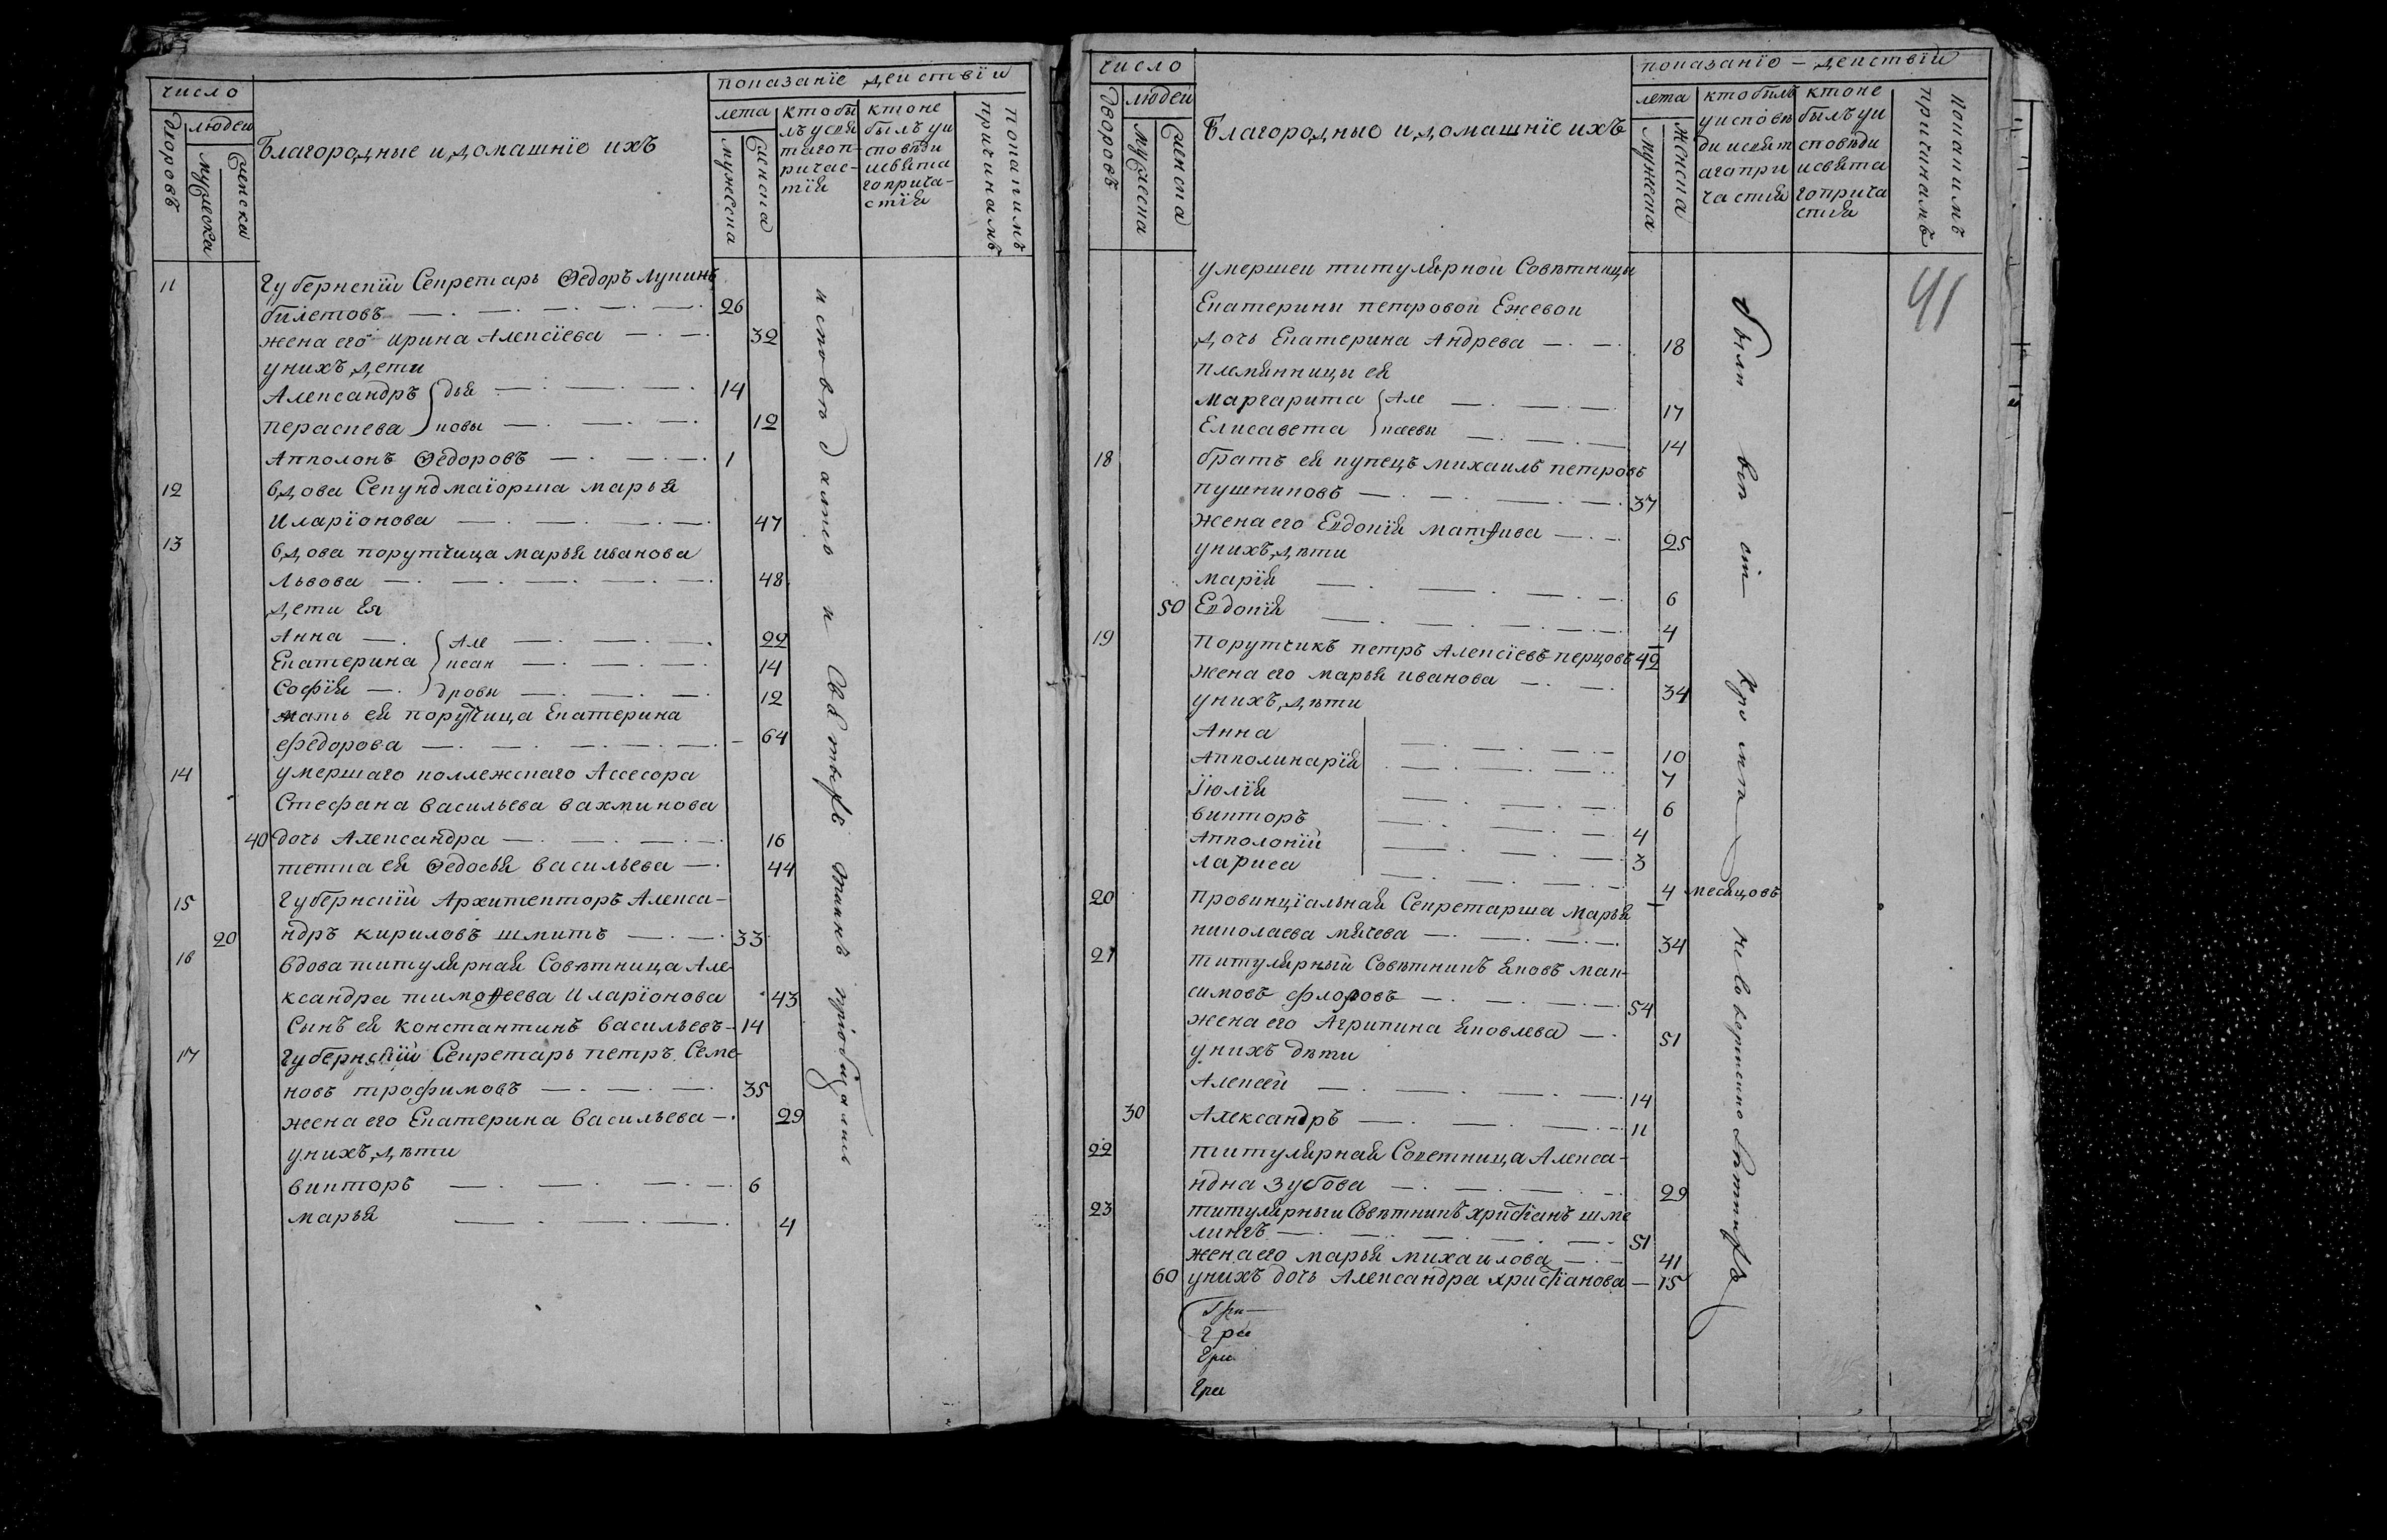 число
показанїе действїи
дворовъ
людей
мужеска
женска
Благородные и домашнїе ихъ
лета
мужеска
женска
кто бы
лъ у свя
таго п-
ричас-
тїя
кто не
былъ у и
сповѣди
и свята
го прича-
стїя
по какимъ
причинамъ
11 Губернскїй Секретарь Ѳедоръ Лукинъ
билетовъ 26
жена его Ирина Алексїева 32
у нихъ дети
Александръ дья 14
Параскева ковы 12
Апполонъ Ѳедоровъ 1
12 вдова Секундмаїорша Марья
Иларїонова 47
13 вдова порутчица Марья Иванова
Львова 48
дети Ея
Анна Але 22
Екатерина ксан 14
Софїя дровы 12
мать ея порутчица Екатерина
Федорова 64
14 умершаго коллежскаго Ассесора
Стефана Васильева Вахминова
40 дочь Александра 16
тетка ея Ѳедосья Васильева 44
15 Губернскїй Архитекторъ Алекса-
20 ндръ Кириловъ Шмитъ 33
16 вдова титулярная Совѣтница Але-
ксандра Тимоѳеева Иларїонова 43
Сынъ ея Константинъ Васильевъ 14
17 Губернскїй Секретарь Петръ Семе-
новъ Трофимовъ 35
жена его Екатерина Васильева 29
у нихъ дѣти
Викторъ 6
Марья 4
исповѣдались и Святыхъ таинъ прїобщались
число
показанїо - действїй
дворовъ
людей
мужеска
женска
Благородные и домашнїе ихъ
лета
мужеска
женска
кто былъ
у исповѣ
ди и свят
аго при
частия
кто не
былъ у и
сповѣди
и свята
го прича
стия
по какимъ
причинамъ
41
умершей титулярной Совѣтницы
Екатерины Петровой Ежевой
дочь Екатерина Андрева 18
племянницы ея
Маргарита Але 17
Елисавета ксеевы 14
18 братъ ея купецъ Михаилъ Петровъ
Пушниковъ 37
жена его Евдокїя Матѳива 25
у нихъ дѣти
Марїя 6
50 Евдокїя 4
19 Порутчикъ Петръ Алексїевъ Перцовъ 42
жена его Марья Иванова 34
у нихъ дѣти
Анна 10
Апполинарїя 7
Їюлїя 6
Викторъ 4
Апполонїй 3
Лариса 4 месяцовъ
20 Провинцїальная Секретарша Марья
Николаева Мячева 34
21 Титулярный Совѣтникъ Яковъ Мак-
симовъ Флоровъ 54
жена его Агрипина Яковлева 51
у нихъ дѣти
Алексей 14
30 Александръ 11
22 титулярная Советница Алекса-
ндна Зубова 29
23 титулярныи Совѣтникъ Христїанъ Шме
лингъ 51
жена его Марья Михаилова 41
60 у нихъ дочь Александра Христїанова 15
были всѣ кромѣ